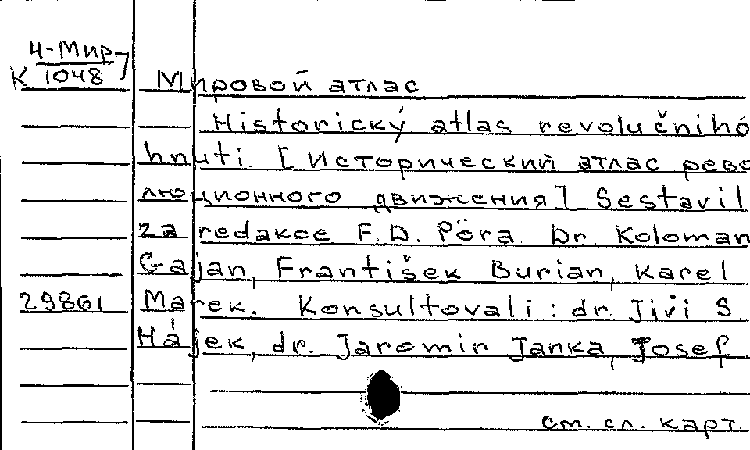 Ч-Мир
К 1048
Мировой атлас
Historický atlas revolučního
hnuti. [Исторический атлас рево
люционного движения] Sestavil
za redakce F.D. Pöra. Dr. Koloman
Gajan, František Burian, Karel
29861 Marek. Konsultovali: dr. Jiři S
Hájek, dr. Jaromir Janka, Josef
см. сл. карт.